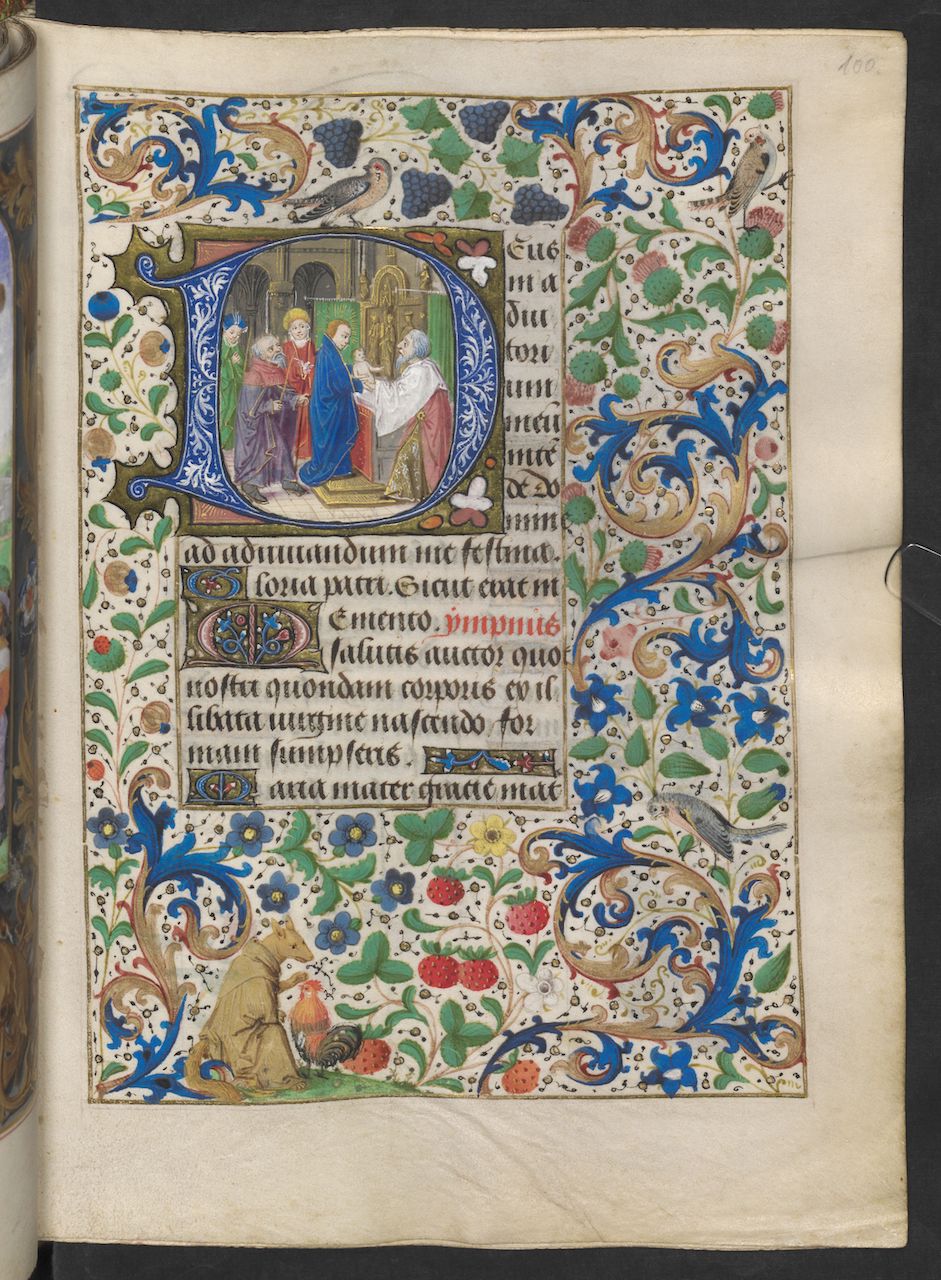 100.
DEus
in a
diu
tori
um
meū
inte
de Do
mine
ad adiuuandum me festina.
Gloria patri. Sicut erat in
Memento. ympnus
salutis auctor quod
nostri quondam corporis ex il
libata uirgine nascendo for
mam sumpseris.
Maria mater gracie mat